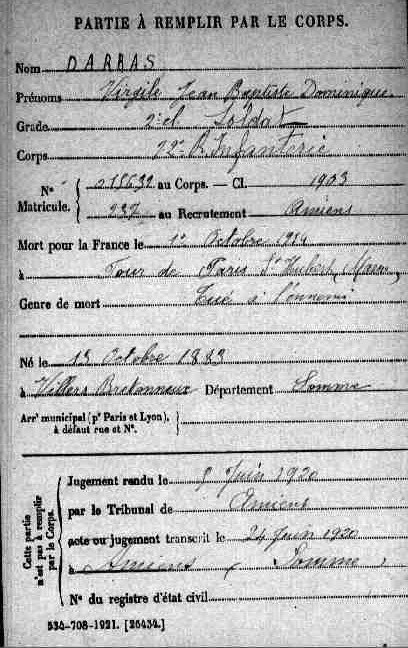 PARTIE À REMPLIR PAR LE CORPS.
Nom DARRAS
Prénoms Virgile Jean Baptiste Dominique
Grade 2e cl Soldat
Corps 72e R. Infanterie
Nos Matricule. 015632 au Corps. — Cl. 1903
227 au Recrutement Amiens
Mort pour la France le 1er Octobre 1914
à Four de Paris St Hubert, Marne
Genre de mort Tué à l'ennemi
Né le 13 Octobre 1883
à Villers Bretonneux Département Somme
Arrt municipal (pr Paris et Lyon),
à défaut rue et No.
Cette partie n'est pas à remplir par le Corps.
Jugement rendu le 5 Juin 1920
par le Tribunal de Amiens
acte ou jugement transcrit le 24 Juin 1920
à Amiens, Somme
No du registre d'état civil
534-708-1921. [26434.]